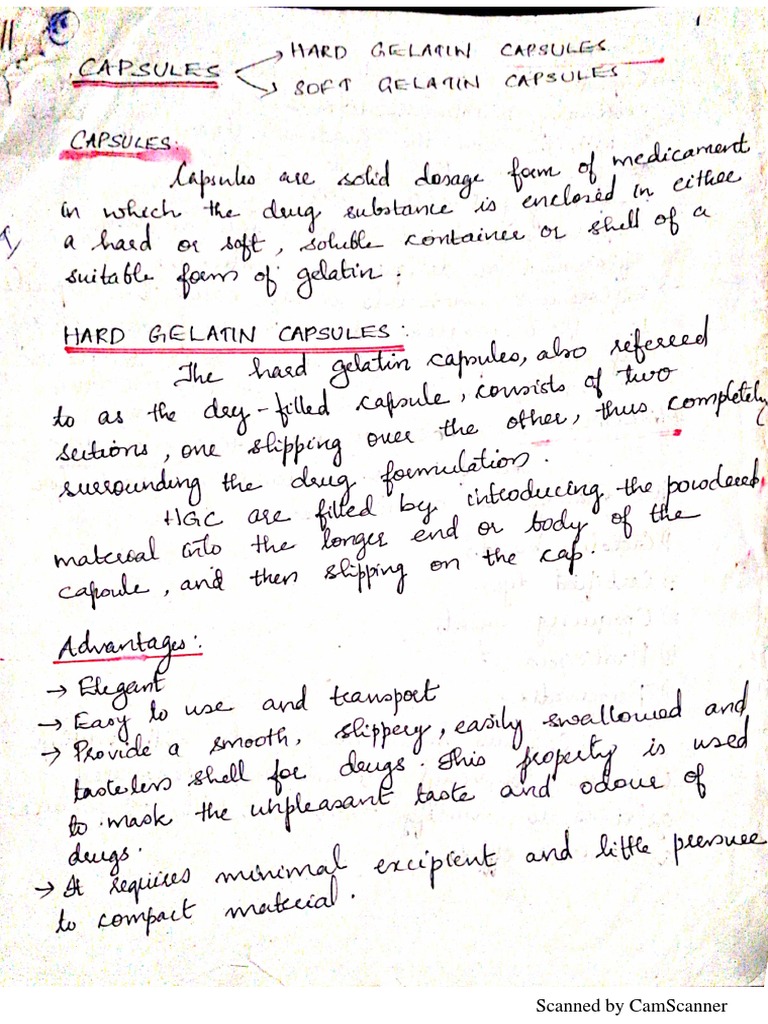 11
1
CAPSULES → HARD GELATIN CAPSULES
→ SOFT GELATIN CAPSULES
CAPSULES:
Capsules are solid dosage form of medicament
in which the drug substance is enclosed in either
a hard or soft, soluble container or shell of a
suitable form of gelatin.
HARD GELATIN CAPSULES:
The hard gelatin capsules, also refereed
to as the dry-filled capsule, consists of two
sections, one slipping over the other, thus completely
surrounding the drug formulation.
HGC are filled by introducing the powdered
material into the longer end or body of the
capsule, and then slipping on the cap.
Advantages:
→ Elegant
→ Easy to use and transport
→ Provide a smooth, slippery, easily swallowed and
tasteless shell for drugs. This property is used
to mask the unpleasant taste and odour of
drugs.
→ It requires minimal excipient and little pressure
to compact material.
Scanned by CamScanner